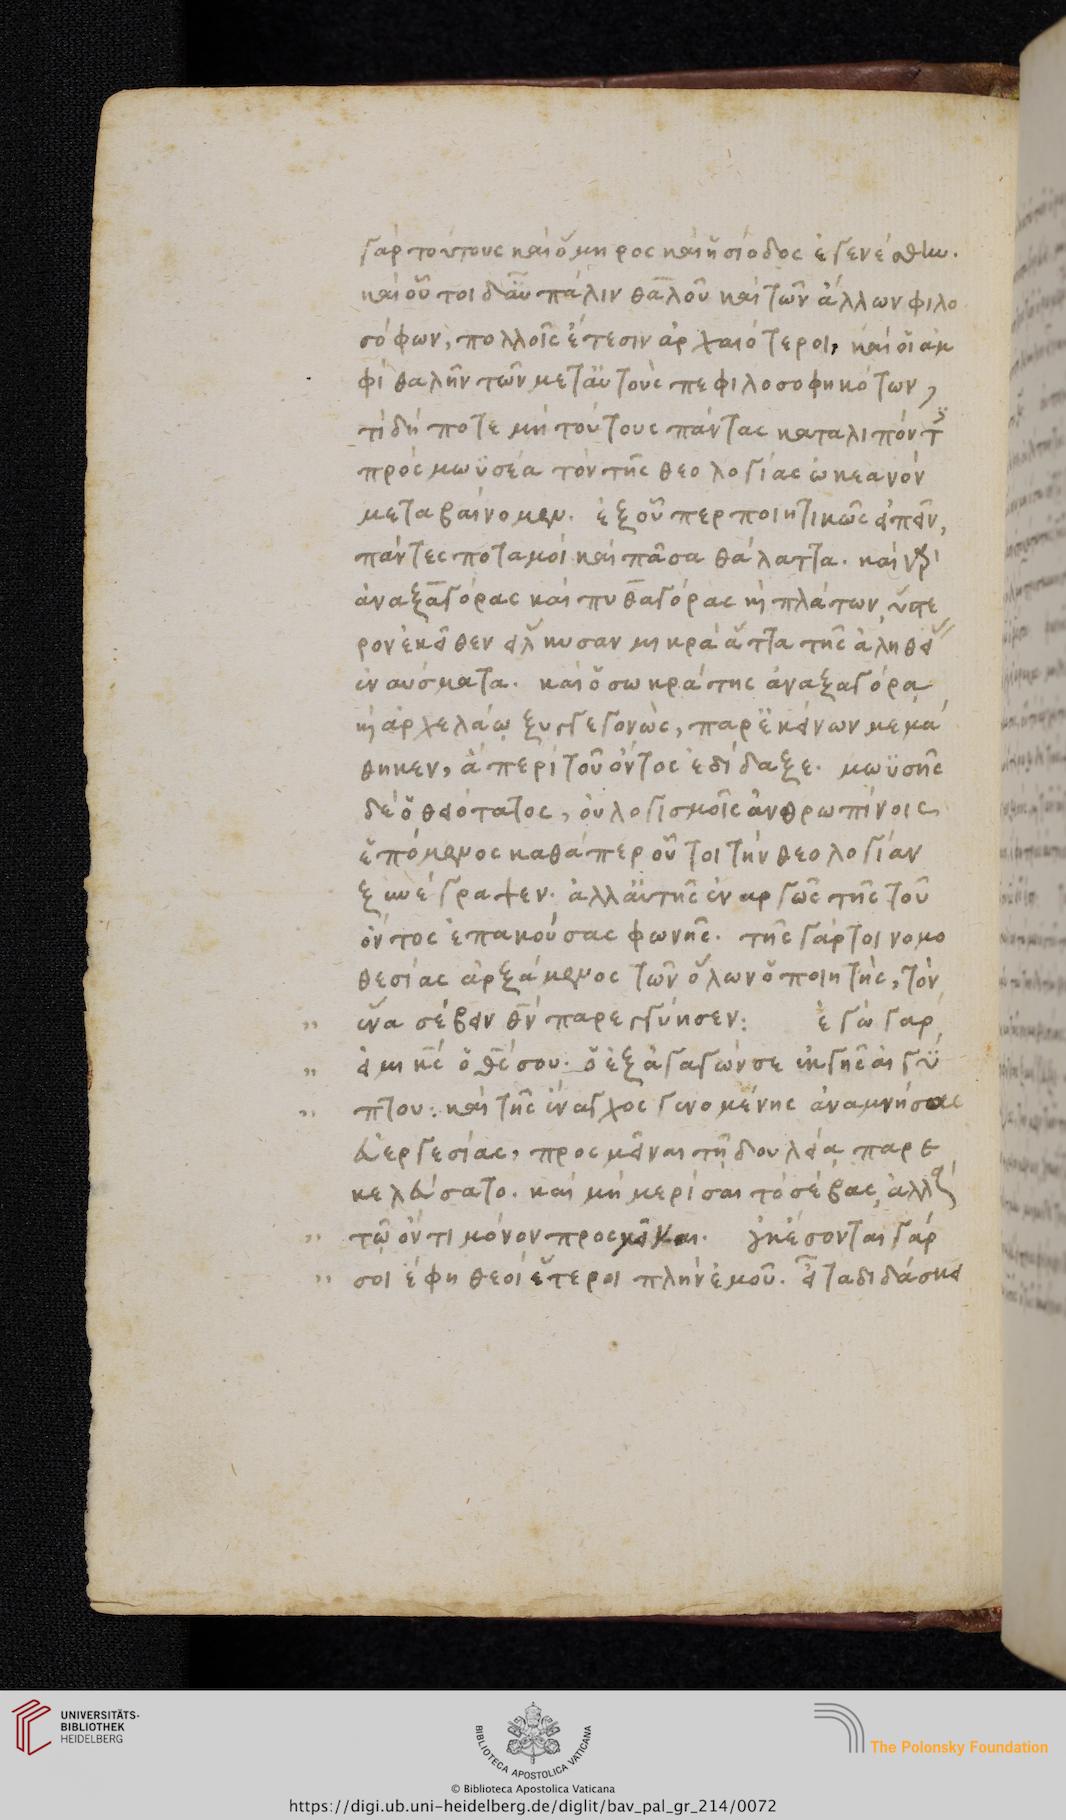 γὰρ τούτους καὶ ὅμηρος καὶ ἡσίοδος ἐγενέσθην.
καὶ οὗτοι δ᾽ αὖ πάλιν θαλοῦ καὶ τῶν ἄλλων φιλο
σόφων, πολλοῖς ἔτεσιν ἀρχαιότεροι, καὶ οἱ ἀμ
φὶ θαλῆν τῶν μετ᾽ αὐτοὺς πεφιλοσοφηκότων,
τί δή ποτε μὴ τούτους πάντας καταλιπόντ
πρὸς μωϋσέα τὸν τῆς θεολογίας ὠκεανὸν
μεταβαίνομεν. ἐξ οὗπερ ποιητικῶς εἰπεῖν,
πάντες ποταμοὶ καὶ πᾶσα θάλαττα. καὶ γὰρ
ἀναξαγόρας καὶ πυθαγόρας κὴ πλάτων ὕστε
ρον ἐκεῖθεν εἵλκυσαν μικρὰ ἄττα τῆς ἀληθεί
ἐναύσματα. καὶ ὁ σωκράτης ἀναξαγόρα
κὴ ἀρχελάῳ ξυγγεγονὼς, παρ᾽ ἐκείνων μεμά
θηκεν, ἃ περὶ τοῦ ὄντος ἐδίδαξε. μωϋσῆς
δέ ὁ θειότατος, οὐ λογισμοῖς ἀνθρωπίνοις
ἑπόμενος καθάπερ οὗτοι τὴν θεολογίαν
ξυνέγραψεν. ἀλλ᾽ αὐτῆς ἐναργῶς τῆς τοῦ
ὄντος ἐπακούσας φωνῆς. τῆς γάρ τοι νομο
θεσίας ἀρξάμενος τῶν ὅλων ὁ ποιητὴς, τὸν
,, ἕνα σέβειν θν παρεγγύησεν: ἐγὼ γάρ
,, εἰμι κς ὁ θς σου. ὁ ἐξαγαγών σε ἐκ γῆς αἰγύ
,, πτου: καὶ τῆς ἔναγχος γενομένης ἀναμνήσας
εὐεργεσίας, προσμεῖναι τῇ δουλείᾳ παρε
κελεύσατο. καὶ μὴ μερίσαι τὸ σέβας, ἀλλὰ
,, τῷ ὄντι μόνον προσνεῖμαι. οὐκ ἔσονται γάρ
,, σοι ἔφη θεοὶ ἕτεροι πλὴν ἐμοῦ. εἶτα διδάσκει
UNIVERSITÄTS-
BIBLIOTHEK
HEIDELBERG
BIBLIOTECA APOSTOLICA VATICANA
The Polonsky Foundation
© Biblioteca Apostolica Vaticana
https://digi.ub.uni-heidelberg.de/diglit/bav_pal_gr_214/0072